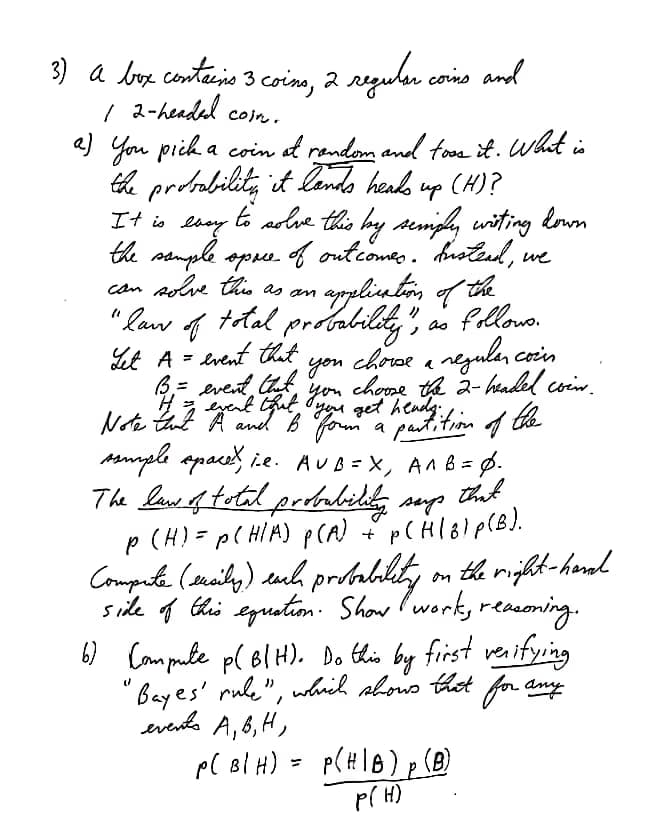 3) A box contains 3 coins, 2 regular coins and
1 2-headed coin.
a) You pick a coin at random and toss it. What is
the probability it lands heads up (H)?
It is easy to solve this by simply writing down
the sample space of outcomes. Instead, we
can solve this as an application of the
"law of total probability", as follows.
Let A = event that you choose a regular coin
B = event that you choose the 2-headed coin.
H = event that you get heads.
Note that A and B form a partition of the
sample space X, i.e. A ∪ B = X, A ∩ B = ∅.
The law of total probability says that
p(H) = p(H|A) p(A) + p(H|B) p(B).
Compute (easily) each probability on the right-hand
side of this equation. Show work, reasoning.
b) Compute p(B|H). Do this by first verifying
"Bayes' rule", which shows that for any
events A, B, H,
p(B|H) = p(H|B) p(B)
p(H) .